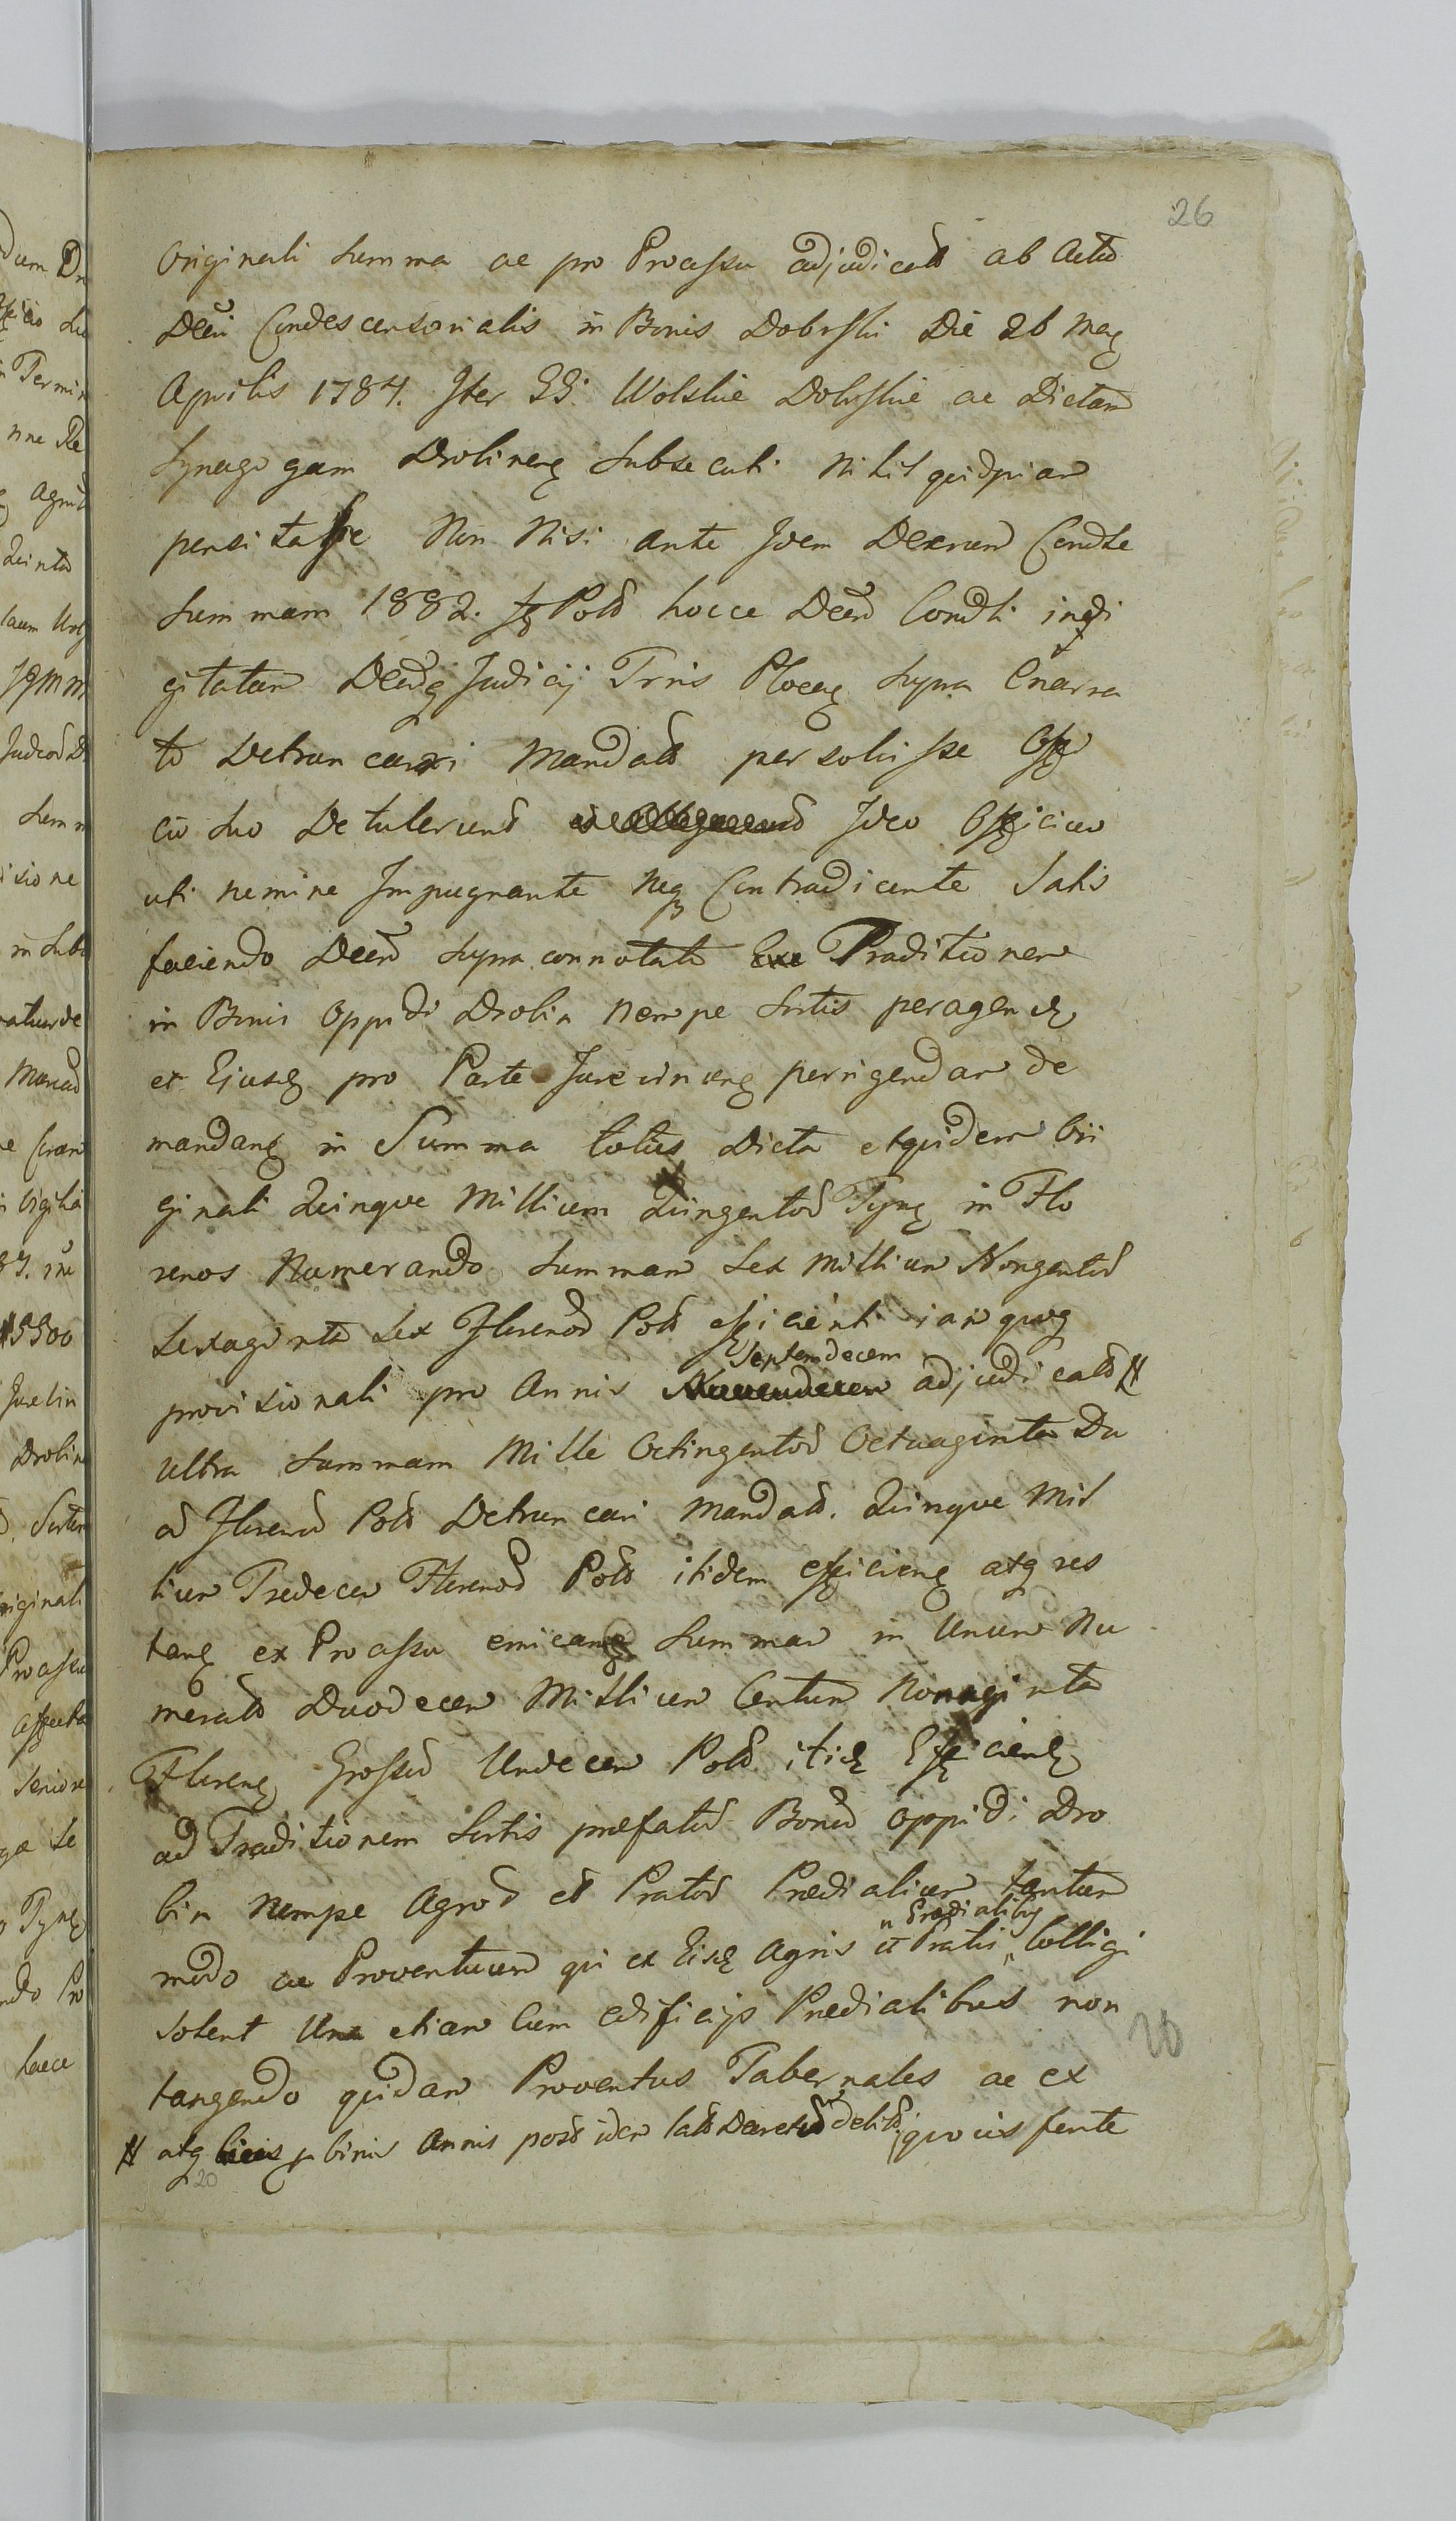 26
originali Summa ac pro Processu adjudicatt ab Actu
Decri Condescensorialis in Bonis Dobrski Die 26 Mag
Aprilis 1784. Iter GG. Wolskie Dobrskie ac Dictam
Synagogam Drobinen Subsecuti Nihil quidpiam
pensitasse Non Nisi ante Idem Decretum Condte
Summam 1882. Fl Poll hocce Decrd Condti indi
gitatam Decrdq Judicij Trnis Plocen Supra Enarra
to Detruncari Mandatt persolvisse Offi
cio Suo Detulerund Ideo Officium
uti nemine Impugnante neq Contradicente Satis
faciendo Decrd Supra connotato Traditionem
in Bonis Oppidi Drobin nempe Sortis peragend
et Ejusd pro Parte porrigendam de
mandans in Summa toties Dicta etquidem Ori
ginali Quinque Millium Quingentod Tynf in Flo
renos Numerando Summam Sex Millium Nongentod
Sexaginta Sex Florenod Poll efficienti iam quoq
provisionali pro Annis adjudicatt #
Septemdecem
ultra Summam Mille Octingentod Octuaginta Du
od Florenod Poll Detruncari Mandatt. Quinque Mil
lium Tredecem Florenod Poll itidem efficien atq res
tan ex Processu emican Summam in Unum Nu
meratt Duodecem Millium Centum Nonaginta
Floren Grossod Undecem Poll. itid Efficien
ad Traditionem Sortis præfatod Bonod oppidi Dro
bin Nempe Agrod et Pratod Prædialium tantum
modo ac Proventuum qui ex Eisd Agris et Pratis Colligi
" Prædialibq
Solent Una etiam Cum ædificijs Prædialibus non
20
tangendo quidam Proventus Tabernales ac ex
# atq binis Annis post idem latt Decretud
quovis fente
20